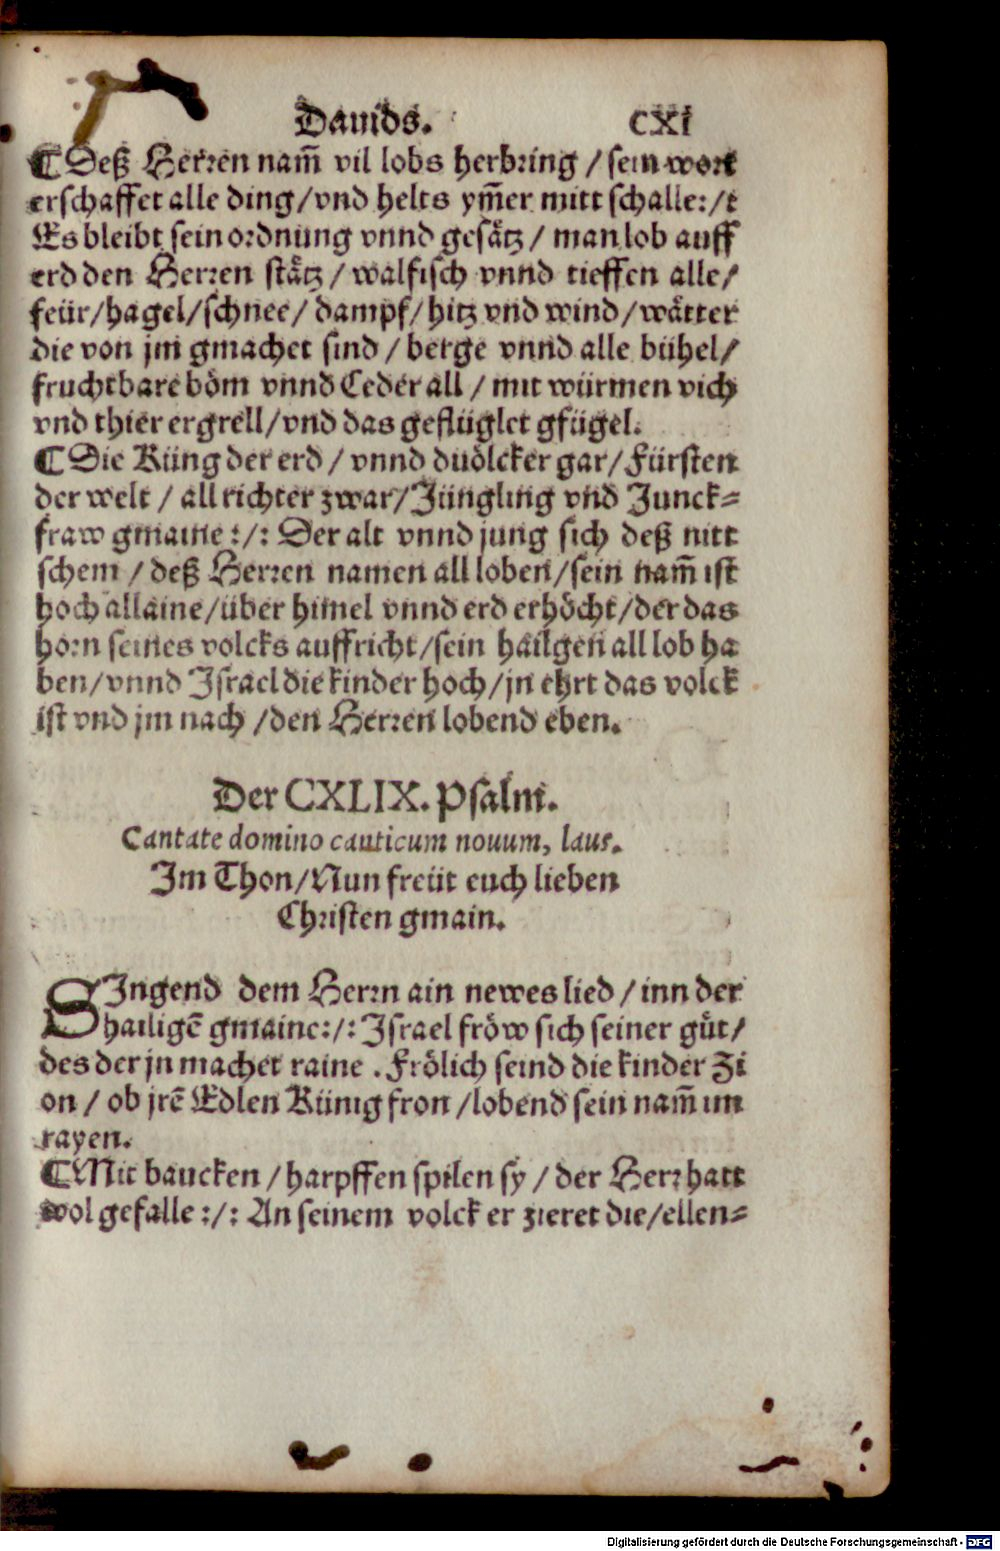 Dauids. CXI
¶ Deß Herren nam̄ vil lobs herbring / sein wort
erschaffet alle ding/vnd helts ym̄er mitt schalle:/:
Es bleibt sein ordnung vnnd gesätz / man lob auff
erd den Herren stätz / walfisch vnnd tieffen alle/
feür/hagel/schnee/ dampf/hitz vnd wind/wätter
die von jm gmachet sind / berge vnnd alle bühel/
fruchtbare böm vnnd Ceder all / mit würmen vich
vnd thier ergrell/vnd das geflüglet gfügel.
¶ Die Küng der erd / vnnd duölcker gar/Fürsten
der welt / all richter zwar/Jüngling vnd Junck⸗
fraw gmaine :/: Der alt vnnd jung sich deß nitt
schem / deß Herren namen all loben/sein nam̄ ist
hoch allaine/über himel vnnd erd erhöcht/der das
horn seines volcks auffricht/sein hailgen all lob ha
ben/vnnd Jsrael die kinder hoch/jn ehrt das volck
ist vnd jm nach /den Herren lobend eben.
Der CXLIX. Psalm.
Cantate domino cauticum nouum, laus.
Im Thon/Nun freüt euch lieben
Christen gmain.
SJngend dem Herrn ain newes lied / inn der
hailigē gmaine:/: Jsrael fröw sich seiner güt/
des der jn machet raine . Frölich seind die kinder Zi
on / ob jrē Edlen Künig fron /lobend sein nam̄ im
rayen.
¶ Mit baucken / harpffen spilen sy / der Herr hatt
wol gefalle :/: An seinem volck er zieret die/ellen⸗
Digitalisierung gefördert durch die Deutsche Forschungsgemeinschaft - DFG